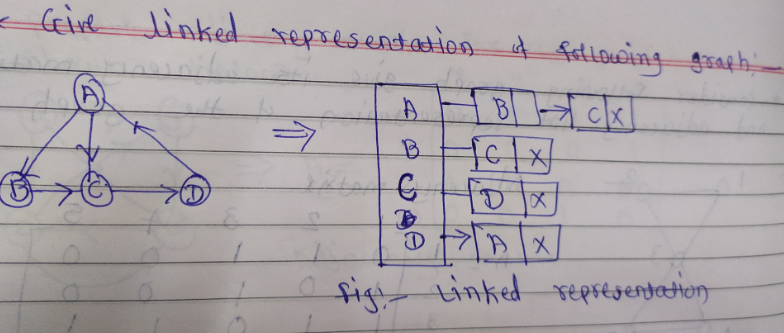 Give linked representation of following graph:-
A
B C D
⇒
A B C X
B C X
C D X
D A X
fig:- Linked representation